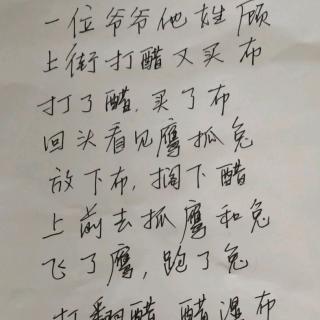 一位爷爷他姓顾
上街打醋又买布
打了醋,买了布
回头看见鹰抓兔
放下布,搁下醋
上前去抓鹰和兔
飞了鹰,跑了兔
打翻醋 醋湿布